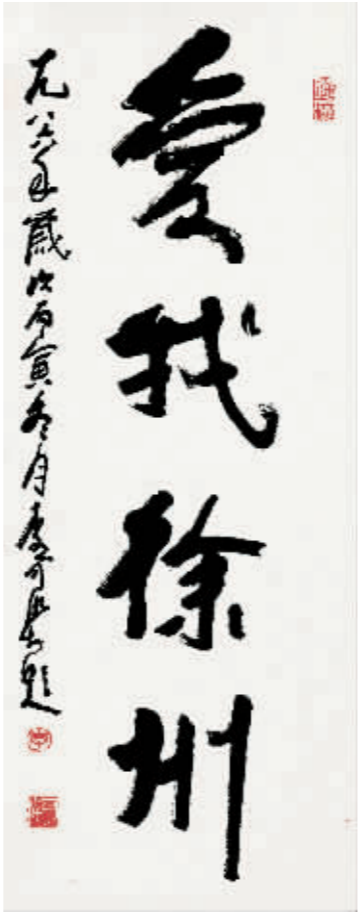 爱我徐州
一九八六年歲次丙寅冬月李可染題